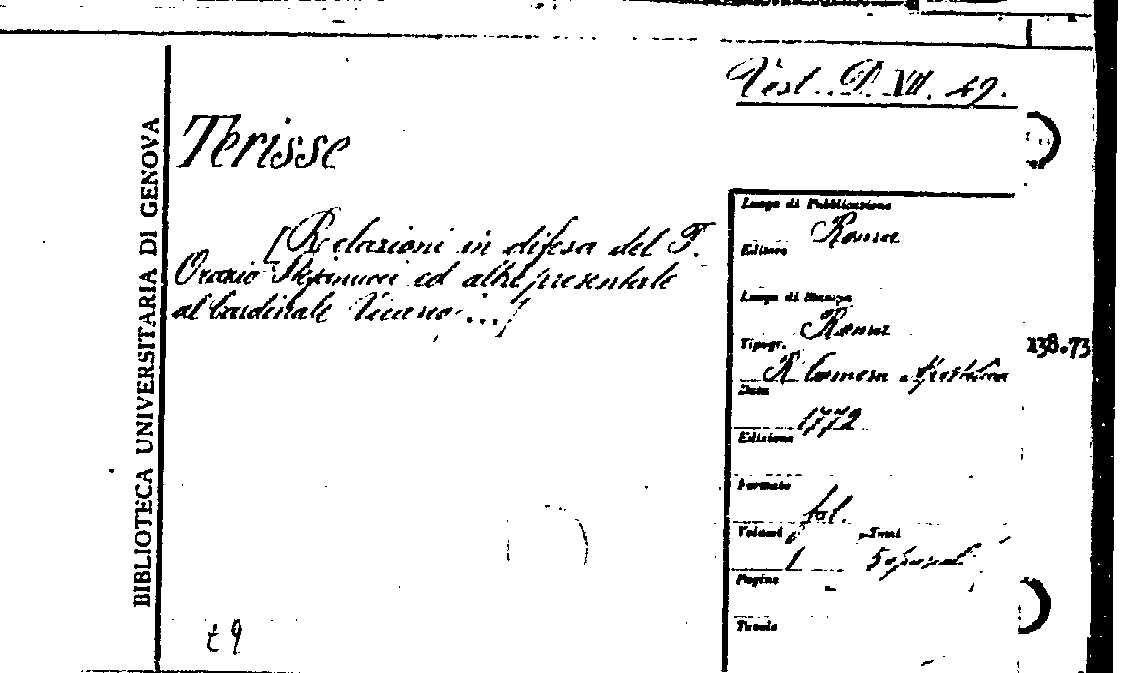 Vest. D. VII. 49.
Terisse
[Relazioni in difesa del F.
Orazio Stefanucci ed altri presentate
al Cardinale Vicario ...]
BIBLIOTECA UNIVERSITARIA DI GENOVA
Luogo di Pubblicazione
Roma
Editore
Luogo di Stampa
Roma
Tipogr.
R. Camera Apostolica
Data
1772
Edizione
Formato
fol.
Volumi
1
Pagine
Tavole
138.73
t 9